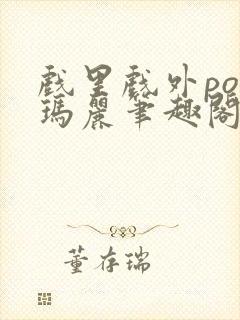 戲里戲外po
瑪麗筆趣閣
董存瑞